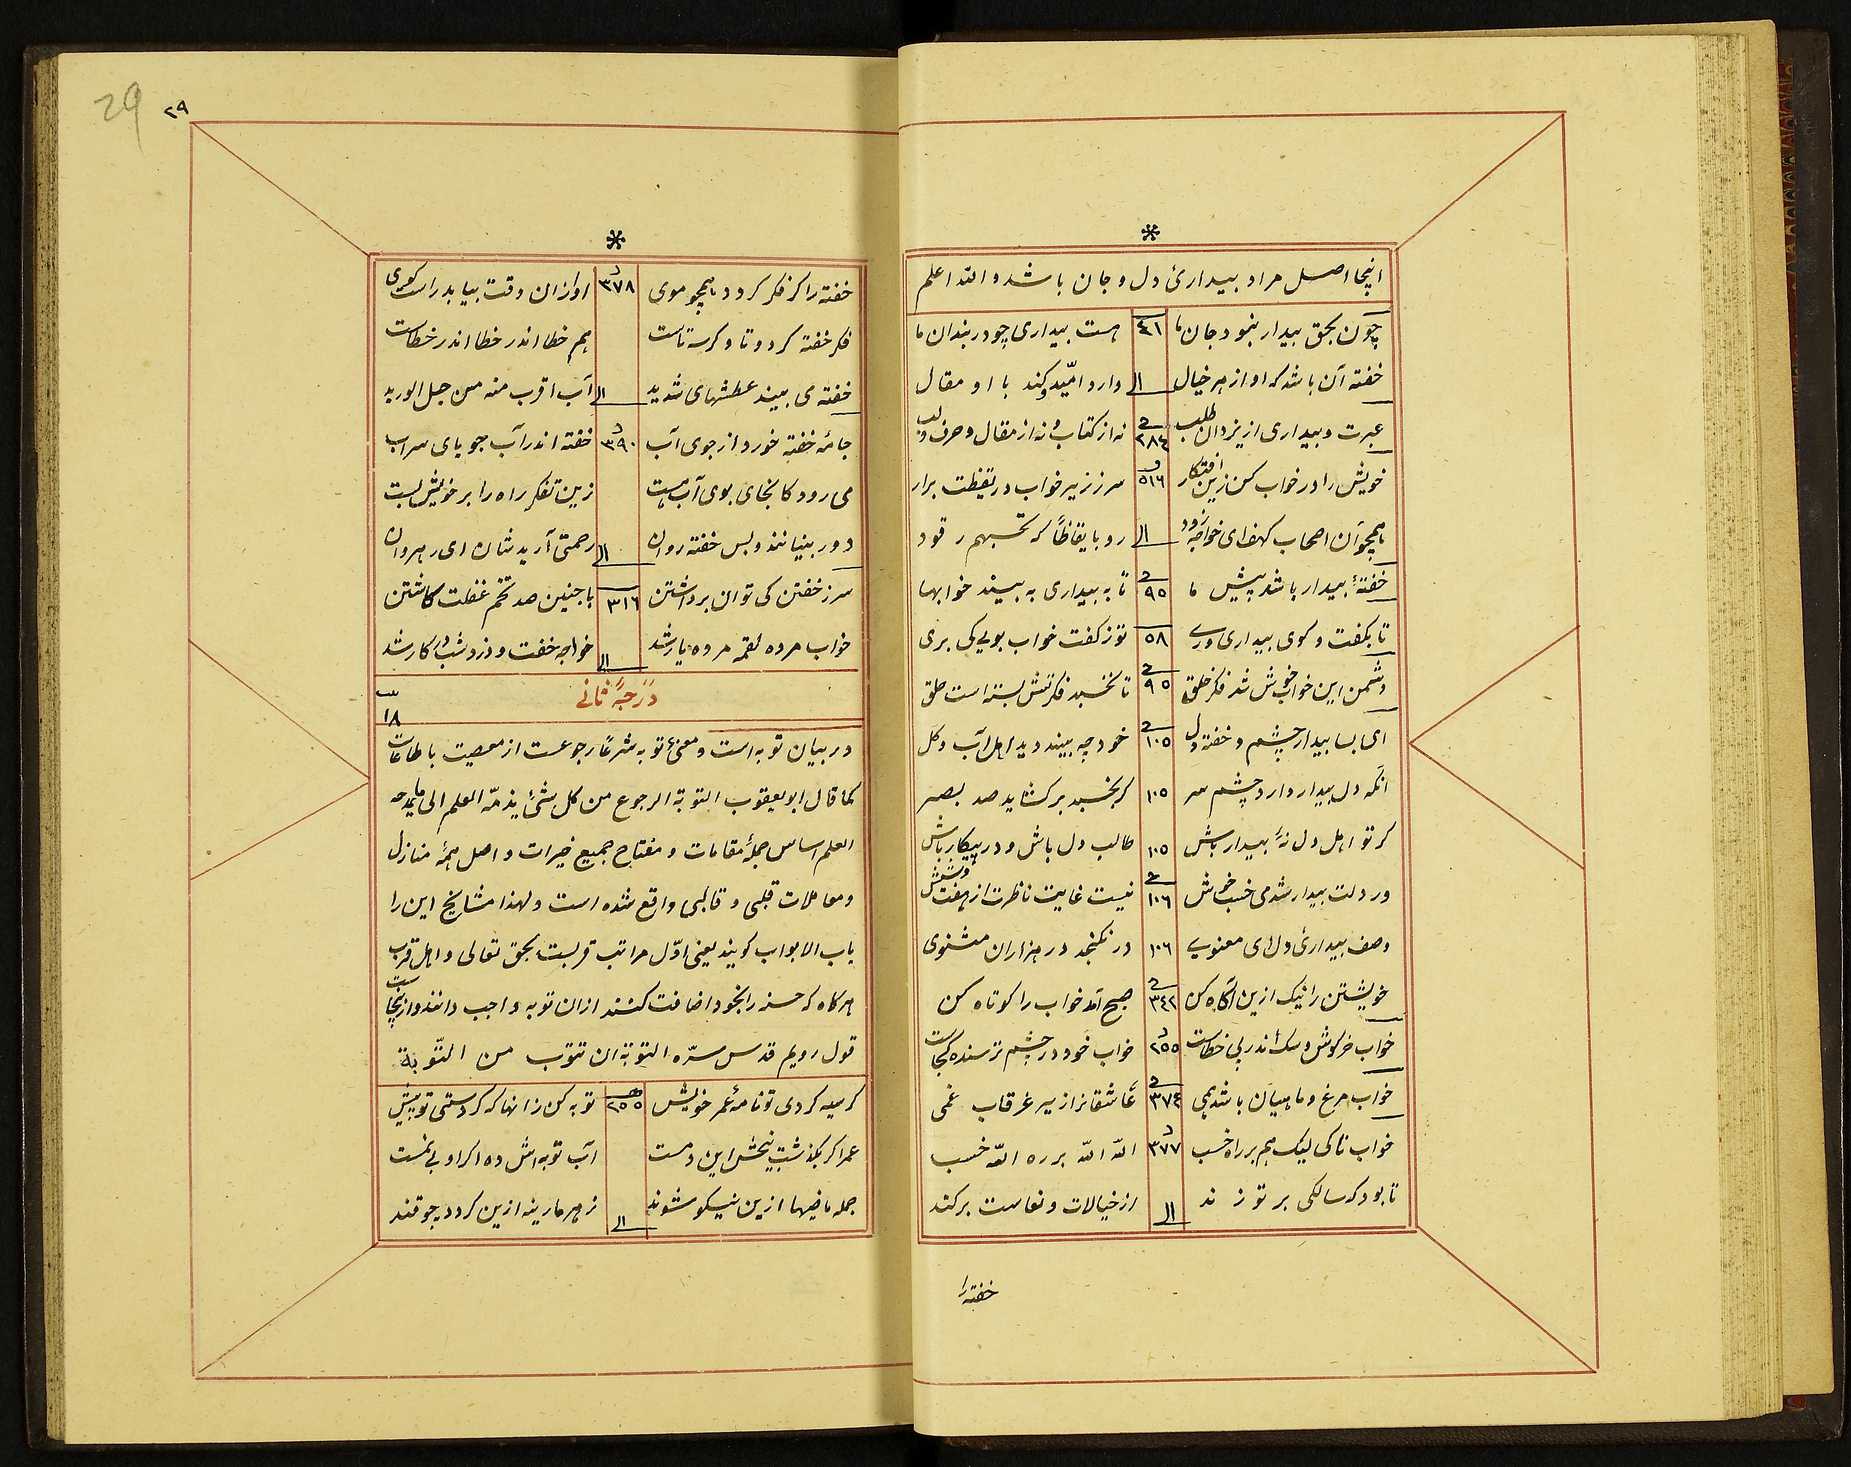 اینجا اصل مراد بیداریٔ دل و جان باشد و الله اعلم
چون بحق بیدار نبود جان ما ٤١ هست بیداری چو در بندان ما
خفته آن باشد که او از هر خیال الى دارد امّید و کند با او مقال
عبرت و بیداری از یزدان طلب ٢٨٤ نه از کتاب و نه از مقال و حرف و لب
خویش را در خواب کن زین افتکار ٥١٦ سر ز زیر خواب در یقظت برار
همچو آن اصحاب کهف ای خواجه زود الى رو بایقاظاً که تحسبهم رقود
خفتهٔ بیدار باشد پیش ما ٩٥ تا به بیداری به بیند خوابها
تا بگفت و گوی بیداری دری ٥٨ تو ز گفت خواب بویی کی بری
دشمن این خواب خوش شد فکر خلق ٩٥ تا نخسبد فکرتش بسته است حلق
ای بسا بیدار چشم و خفته دل ١٠٥ خود چه بیند دید اهل آب و گل
آنکه دل بیدار دارد چشم سر ١٠٥ گر بخسبد بر گشاید صد بصر
گر تو اهل دل نهٔ بیدار باش ١٠٥ طالب دل باش و در پیکار باش
ور دلت بیدار شد می خسب خوش ١٠٦ نیست غایب ناظرت از هفت و شش
وصف بیداریٔ دل ای معنوی ١٠٦ در نگنجد در هزاران مثنوی
خویشتن را نیک ازین آگاه کن ٣٤٢ صبح آمد خواب را کوتاه کن
خواب خرگوش و سگ اندر پی خطاست ٢٥٥ خواب خود در چشم ترسنده کجاست
خواب مرغ و ماهیان باشد همی ٣٧٤ عاشقانرا زیر غرقاب غمی
خواب ناکی لیک هم بر راه خسب ٣٧٧ الله الله بر ره الله خسب
تا بود که سالکی بر تو زند الى از خیالات و نعاست بر کند
خفته را
29
٢٩
خفته را گر فکر گردد همچو موی ٣٧٨ او از آن دقت بیابد راست کوی
فکر خفته گر دو تا و گر سه تاست هم خطا اندر خطا اندر خطاست
خفته می بیند عطشهای شدید الى آب اقرب منه من حبل الورید
جامهٔ خفته خورد از جوی آب ٣٩٠ خفته اندر آب جویای سراب
می رود کانجای بوی آب هست زین تفکر راه را بر خویش بست
دور بینانند و بس خفته روان الى رحمتی آریدشان ای رهروان
سر ز خفتن کی توان برداشتن ٣١٦ با چنین صد تخم غفلت کاشتن
خواب مرده لقمه مرده یار شد الى خواجه خفت و دزد شب در کار شد
درجهٔ ثانی ١٨
در بیان توبه است و معنیٔ توبه شرعًا رجوعست از معصیت با طاعات
کما قال ابو یعقوب التوبة الرجوع من کل شئ یذمّه العلم الی ما یمدحه
العلم اساس جملهٔ مقامات و مفتاح جمیع خیرات و اصل همهٔ منازل
و معاملات قلبی و قالبی واقع شده است و لهذا مشایخ این را
باب الابواب کویند یعنی اوّل مراتب قربست بحق تعالی و اهل قرب
هر کاه که حسنه را بخود اضافت کنند از ان توبه واجب دانند و از ینجاست
قول رویم قدس سرّه التوبة ان تتوب من التّوبة
گر سیه کردی تو نامهٔ عمر خویش ٢٥٥ توبه کن زانها که کردستی تو پیش
عمر اگر بگذشت بیخش این دمست آب توبه اش ده اگر او بی نمست
جمله ماضیها ازین نیکو شوند الى زهر مارینه ازین کردد چو قند